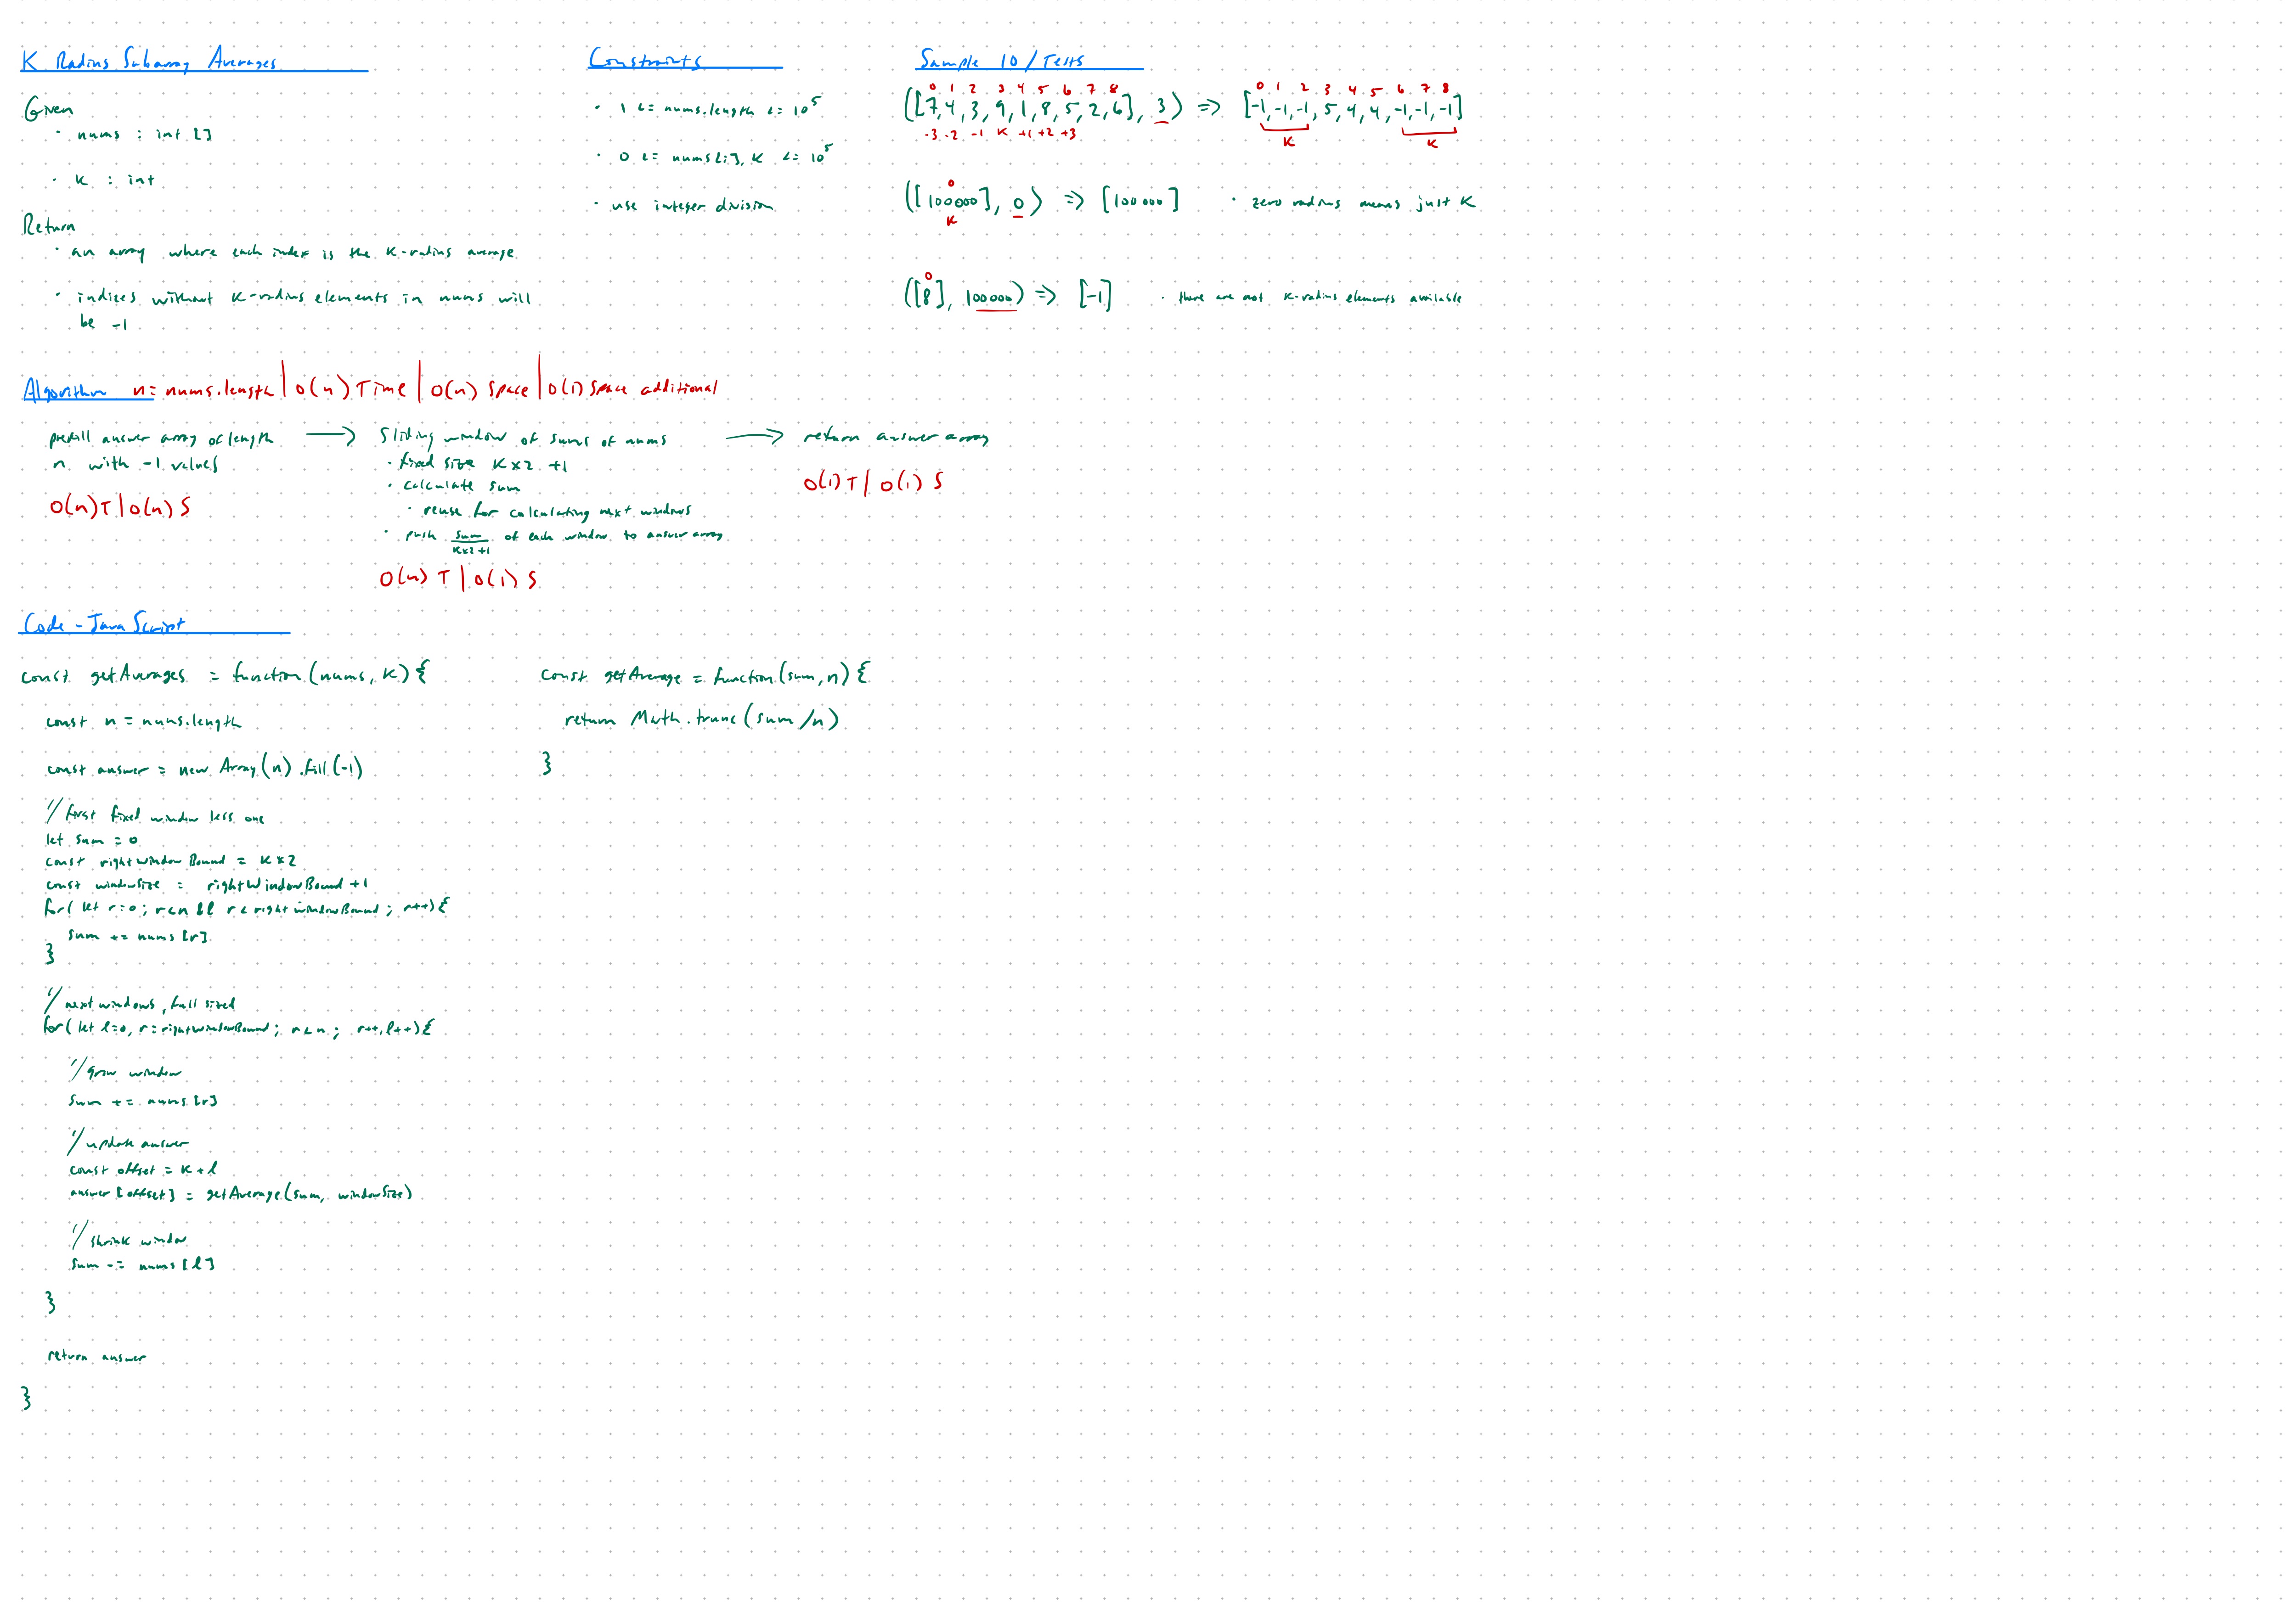 K Radius Subarray Averages
Given
· nums : int []
· K : int
Return
· an array where each index is the K-radius average
· indices without K-radius elements in nums will
be -1
Constraints
· 1 <= nums.length <= 10^5
· 0 <= nums[i], K <= 10^5
· use integer division
Sample IO/Tests
0 1 2 3 4 5 6 7 8
0 1 2 3 4 5 6 7 8
([7,4,3,9,1,8,5,2,6], 3) => [-1,-1,-1,5,4,4,-1,-1,-1]
-3 -2 -1 K +1 +2 +3
K K
0
([100000], 0) => [100000] · zero radius means just K
K
0
([8], 100000) => [-1] · there are not K-radius elements available
Algorithm n = nums.length | O(n) Time | O(n) Space | O(1) Space additional
prefill answer array of length
n with -1 values
O(n) T | O(n) S
→ Sliding window of sums of nums
· fixed size K×2 +1
· calculate sum
· reuse for calculating next windows
· push sum/K×2+1 of each window to answer array
O(n) T | O(1) S
→ return answer array
O(1) T | O(1) S
Code - JavaScript
const getAverages = function(nums, K) {
const n = nums.length
const answer = new Array(n).fill(-1)
// first fixed window less one
let sum = 0
const rightWindowBound = K * 2
const windowSize = rightWindowBound +1
for( let r=0; r<n && r < rightWindowBound; r++) {
sum += nums[r]
}
// next windows, full sized
for( let l=0, r=rightWindowBound; r < n; r++, l++) {
// grow window
sum += nums[r]
// update answer
const offset = K + l
answer[offset] = getAverage(sum, windowSize)
// shrink window
sum -= nums[l]
}
return answer
}
const getAverage = function(sum, n) {
return Math.trunc(sum/n)
}